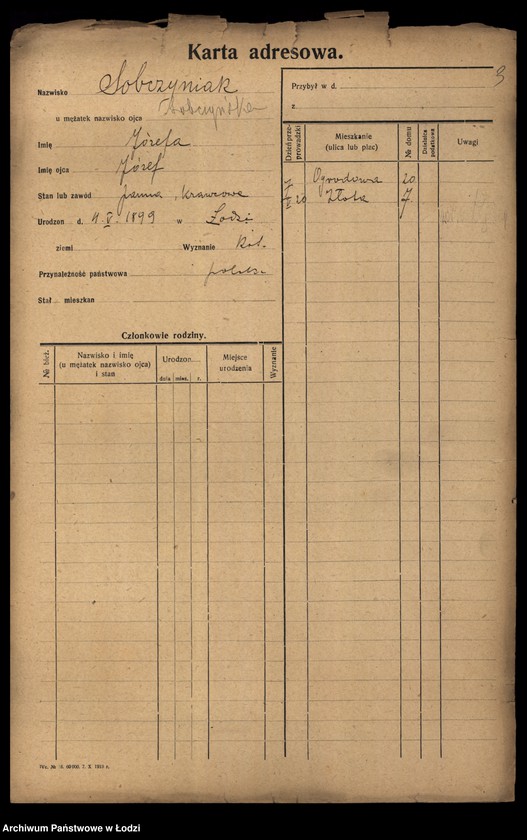 Karta adresowa.
Nazwisko Sobczyniak
u mężatek nazwisko ojca
Imię Józefa
Imię ojca Józef
Stan lub zawód panna, krawcowa
Urodzon d. 4.V.1899 w Łodzi
ziemi Wyznanie kat.
Przynależność państwowa polska
Stał mieszkan
Członkowie rodziny.
№ bież.
Nazwisko i imię
(u mężatek nazwisko ojca)
i stan
Urodzon
dnia mies. r.
Miejsce
urodzenia
Wyznanie
Wz. № 60000. 7. X. 1918 r.
3
Przybył w d.
z
Dzień przeprowadzki
Mieszkanie
(ulica lub plac)
№ domu
Dzielnica podatkowa
Uwagi
Ogrodowa 20
20 Złota 7
Archiwum Państwowe w Łodzi